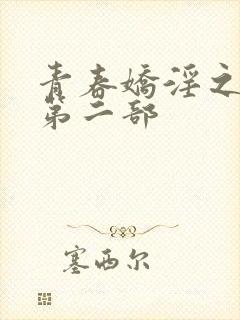 青春嬌淫之
第二部
塞西尔